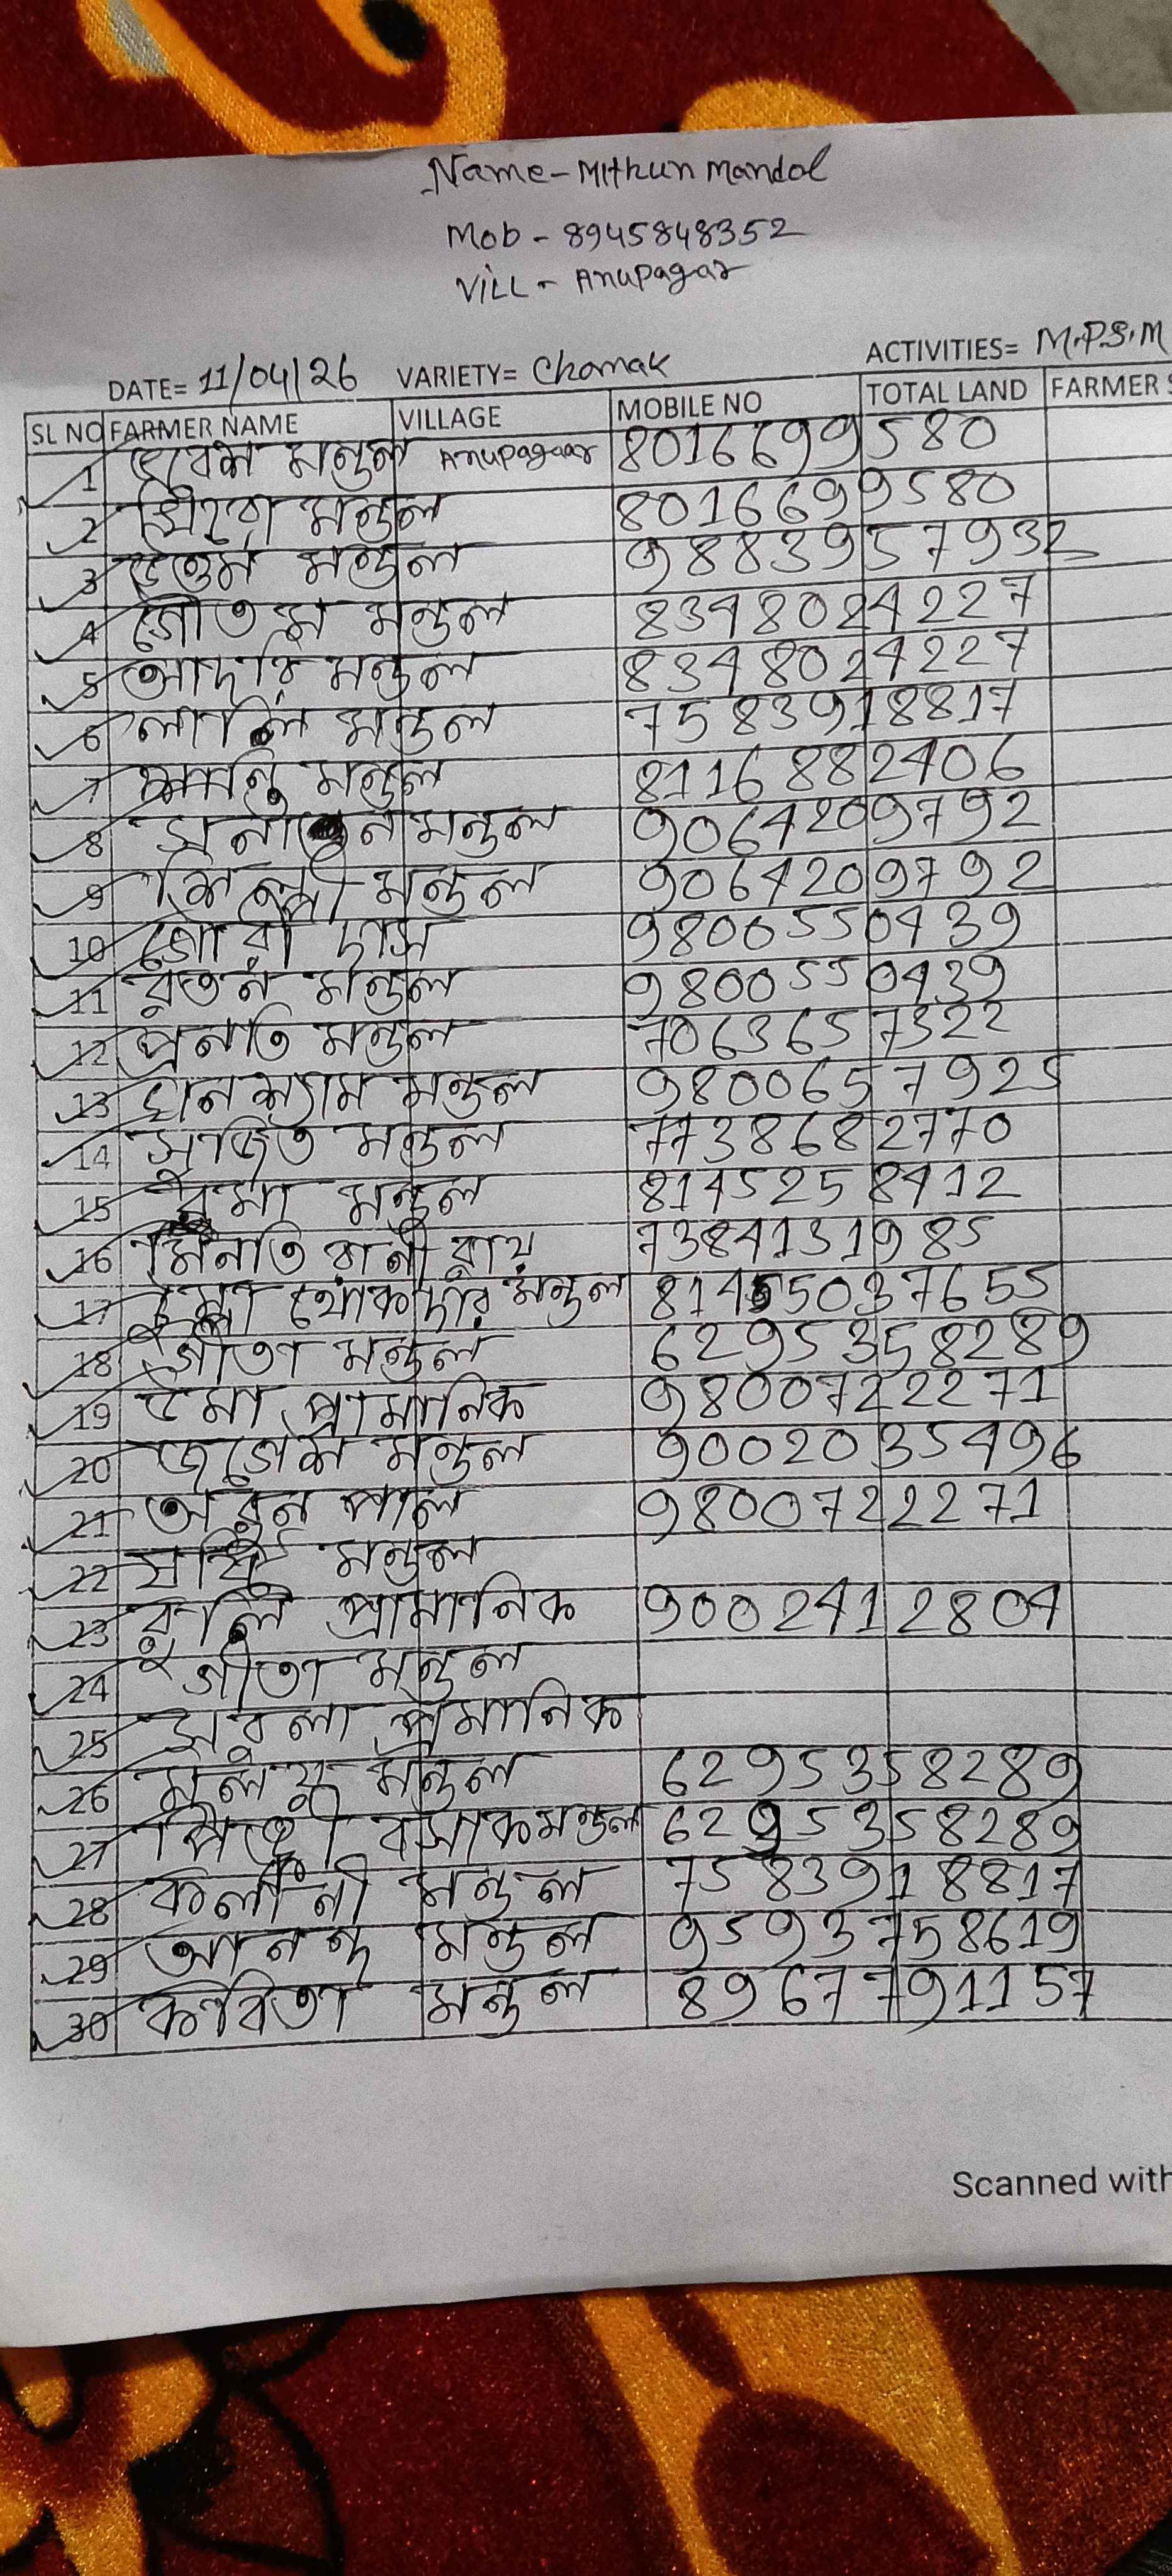 Name - Mithun Mandal
Mob - 8945848352
Vill - Anupagar
DATE= 11/04/26 VARIETY= Chamak ACTIVITIES= M.P.S.M
SL NO FARMER NAME VILLAGE MOBILE NO TOTAL LAND FARMER S
1 মন্ডল Anupagaar 8016699580
2 মন্ডল 8016699580
3 উত্তম মন্ডল 9883957932
4 গৌতম মন্ডল 8348024227
5 আদরি মন্ডল 8348024227
6 লালি মন্ডল 7583918817
7 মন্ডল 8116882406
8 মন্ডল 9064209792
9 শিল্পী মন্ডল 9064209792
10 গৌরী দাস 9800550439
11 রতন মন্ডল 9800550439
12 প্রনতি মন্ডল 7063657322
13 ঘনশ্যাম মন্ডল 9800657925
14 সুজিত মন্ডল 7738682770
15 মন্ডল 8145258412
16 মিনতি রানী রায় 7384131985
17 মন্ডল 81455037655
18 গীতা মন্ডল 6295358289
19 উমা প্রামানিক 9800722271
20 মন্ডল 9002035496
21 পাল 9800722271
22 ষষ্ঠি মন্ডল
23 প্রামানিক 9002412804
24 গীতা মন্ডল
25 সরলা প্রমানিক
26 মলয় মন্ডল 6295358289
27 বসাক মন্ডল 6295358289
28 মন্ডল 7583918817
29 আনন্দ মন্ডল 9593758619
30 কবিতা মন্ডল 8967791157
Scanned with